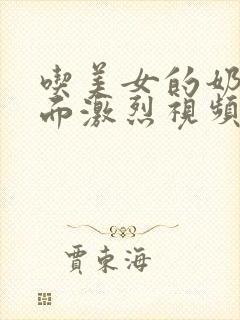 喫美女的奶
而激烈視頻
賈東海